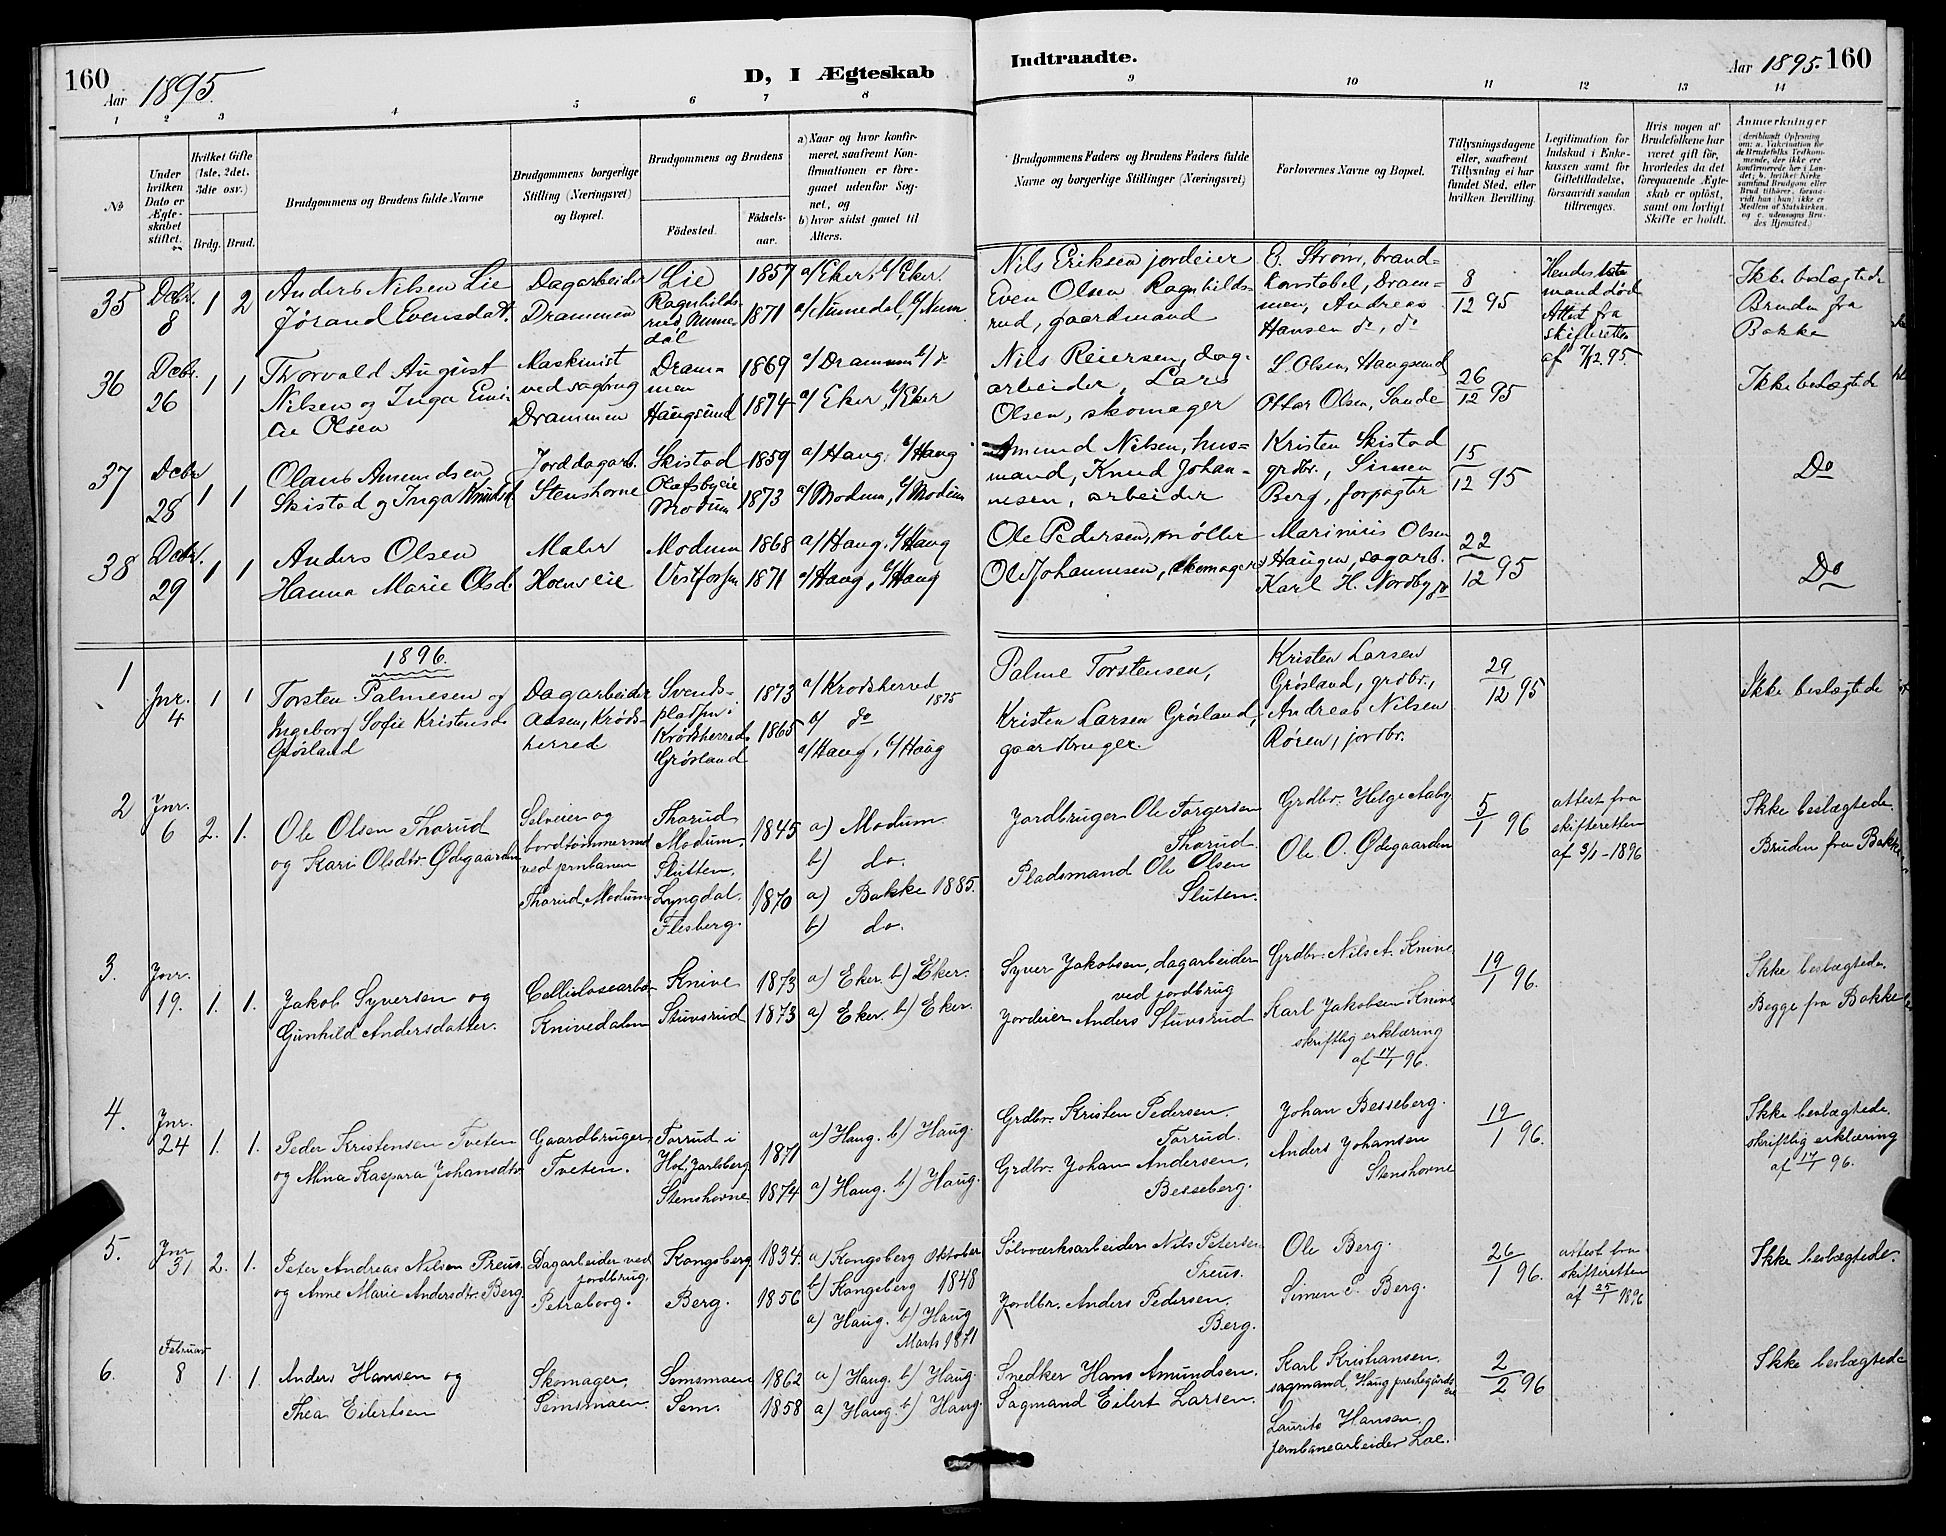 160
Aar 1895.
D, I Ægteskab
Indtraadte.
Aar 1895. 160
1 2 3 4 5 6 7 8 9 10 11 12 13 14
No
Under hvilken Dato er Ægteskabet stiftet.
Hvilket Gifte (1ste, 2det, 3die osv.)
Brdg. Brud.
Brudgommens og Brudens fulde Navne
Brudgommens borgerlige Stilling (Næringsvei) og Bopæl.
Brudgommens og Brudens
Fødested.
Fødselsaar.
a) Naar og hvor konfirmeret, saafremt Konfirmationen er foregaaet udenfor Sognet, og
b) hvor sidst gaaet til Alters.
Brudgommens Faders og Brudens Faders fulde Navne og borgerlige Stillinger (Næringsvei)
Forlovernes Navne og Bopæl.
Tillysningsdagene eller, saafremt Tillysning ei har fundet Sted, efter hvilken Bevilling.
Legitimation for Indskud i Enkekassen samt for Giftetilladelse, forsaavidt saadan tiltrænges.
Hvis nogen af Brudefolkene har været gift før, hvorledes da det foregaaende Ægteskab er opløst, samt om lovligt Skifte er holdt.
Anmærkninger
35 Decbr. 8 1 2
Anders Nilsen Lie
Jørand Evensdat.
Dagarbeider
Drammen
Lie
Ragnhildsrud Numedal
1857
1871
a/Eker, b/Eker
a/Numedal, b/Num.
Nils Eriksen jordeier
Even Olsen Ragnhildsrud, gaardmand
E. Strøm, brandkonstabel, Drammen, Andreas
Hansen do, do
8/12 95
Hendes 1ste
mand død
Attest fra
skifteretten
af 7/12 95.
Ikke beslægtede
Bruden fra
Bakke
36 Decbr. 26 1 1
Thorvald August
Nilsen og Inga Emilie Olsen
Maskinist
ved sagbrug
Drammen
Drammen
Haugsund
1869
1874
a/Drammen b/do
a/Eker, b/Eker
Nils Reiersen, dagarbeider, Lars
Olsen, skomager
L. Olsen, Haugsund
Ottar Olsen, Sande
26/12 95
Ikke beslægtede
37 Decbr 28 1 1
Olaus Amundsen
Skistad og Inga Knudsd.
Jorddagarb.
Stenshorne
Skistad
Olafsbyeie
Modum
1859
1873
a/Haug, b/Haug
a/Modum, b/Modum
Amund Nilsen, husmand, Knud Johannesen, arbeider
Kristen Skistad
grdbr., Simen
Berg, forpagter
15/12 95
Do
38 Decbr. 29 1 1
Anders Olsen
Hanna Marie Olsd.
Maler
Hoenseie
Modum
Vestfossen
1868
1871
a/Haug, b/Haug
a/Haug, b/Haug
Ole Pedersen, møller
Ole Johannesen, skomager
Marinius Olsen
Haugen, sagarb.
Karl H. Nordby do
22/12 95
Do
1896.
1 Jnr. 4 1 1
Torsten Palmesen og
Ingeborg Sofie Kristensd.
Grøsland
Dagarbeider
Aasen, Krødsherred
Svendspladsen i
Krødsherred
Grøsland
1873
1865
a/Krødsherred
1875
b/ do
a/Haug, b/Haug
Palme Torstensen,
Kristen Larsen Grøsland,
gaardbruger.
Kristen Larsen
Grøsland, grdbr.,
Andreas Nilsen
Røren, jordbr.
29/12 95
Ikke beslægtede
2 Jnr. 6 2. 1.
Ole Olsen Thorud
og Kari Olsdtr. Ødegaarden
Selveier og
bordtømmermand
ved jernbanen
Thorud, Modum
Thorud
Modum.
Slutten,
Lyngdal.
Flesberg.
1845
1870
a) Modum.
b) do.
a) Bakke 1885.
b) do.
Jordbruger Ole Torgersen
Thorud.
Pladsmand Ole Olsen
Sluten.
Grdbr. Helge Aaby
Ole O. Ødegaarden
5/1 96
attest fra
skifteretten
af 3/1-1896
Ikke beslægtede.
Bruden fra Bakke
3. Jnr. 19. 1. 1.
Jakob Syversen og
Gunhild Andersdatter.
Cellulosearb.
Knivedalen
Knive
Stuvsrud
1873
1873
a) Eker. b) Eker.
a) Eker. b) Eker.
Syver Jakobsen, dagarbeider
ved jordbrug
Jordeier Anders Stuvsrud
Grdbr. Nils A. Knive
Karl Jakobsen Knive
skriftlig erklæring
af 17/1 96.
19/1 96.
Ikke beslægtede.
Begge fra Bakke
4. Jnr. 24 1. 1.
Peder Kristensen Tveten
og Mina Kaspara Johansdtr.
Gaardbruger
Tveten.
Torrud i
Hof, Jarlsberg
Stenshorne
1871
1874
a) Haug. b) Haug.
a) Haug. b) Haug.
Grdbr. Kristen Pedersen.
Torrud.
Grdbr. Johan Andersen,
Besseberg.
Johan Besseberg.
Anders Johansen
Stenshorne
19/1 96.
Ikke beslægtede.
skriftlig erklæring
af 17/1 96.
5. Jnr 31 2. 1.
Peter Andreas Nilsen Preus.
og Anne Marie Andersdtr. Berg
Dagarbeider ved
jordbrug.
Petraborg.
Kongsberg
Berg.
1834.
1856
a) Kongsberg Oktober
b) Kongsberg 1848
a) Haug. b) Haug
Marts 1871
Sølvværksarbeider Nils Petersen
Preus.
Jordbr. Anders Pedersen.
Berg.
Ole Berg.
Simen P. Berg.
26/1 96.
attest fra
skifteretten
af 25/1 1896
Ikke beslægtede.
6. Februar 8 1. 1.
Anders Hansen og
Thea Eilertsen
Skomager,
Semsmoen.
Semsmoen
Sem.
1862
1858
a) Haug. b) Haug.
a) Haug. b) Haug.
Snedker Hans Amundsen.
Sagmand Eilert Larsen.
Karl Kristiansen.
sagmand, Haug prestegårds
eie
Laurits Hansen.
jernbanearbeider Loe.
2/2 96
Ikke beslægtede